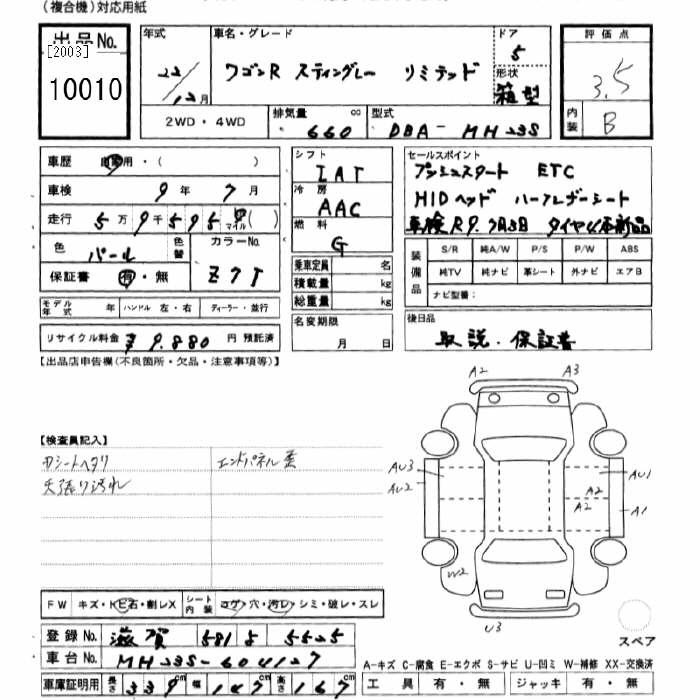 (複合機)対応用紙
出品No. [2003] 10010
年式 22/12月
車名・グレード ワゴンR スティングレー リミテッド
ドア 5
形状 箱型
評価点 3.5
内装 B
2WD・4WD
排気量 660 cc
型式 DBA-MH23S
車歴 自家用・( )
車検 9年 7月
走行 5万9千595 マイル( )
色 パール 色替
カラーNo. Z7T
保証書 有・無
シフト IAT
冷房 AAC
燃料 G
乗車定員 名
積載量 kg
総重量 kg
セールスポイント
プッシュスタート ETC
HIDヘッド ハーフレザーシート
車検R9.7月3日 タイヤ4石新品
装備品 S/R 純A/W P/S P/W ABS
純TV 純ナビ 革シート 外ナビ エアB
ナビ型番:
モデル年式 年 ハンドル 左・右 ディーラー・並行
リサイクル料金 ¥9.880 円 預託済
名変期限 月 日
後日品 取説・保証書
【出品店申告欄(不良箇所・欠品・注意事項等)】
【検査員記入】
Dシートヘタリ エンドパネル歪
天張り汚れ
A2 A3
AU3 AU2 AU1
A2 A2 A1
W2
U3
スペア
FW キズ・ヒビ石・割レX シート内装 コゲ・穴・汚レ・シミ・破レ・スレ
登録No. 滋賀 581 5525
車台No. MH23S-604127
A-キズ C-腐食 E-エクボ S-サビ U-凹ミ W-補修 XX-交換済
車庫証明用 長さ 339cm 幅 147cm 高さ 167cm
工具 有・無 ジャッキ 有・無